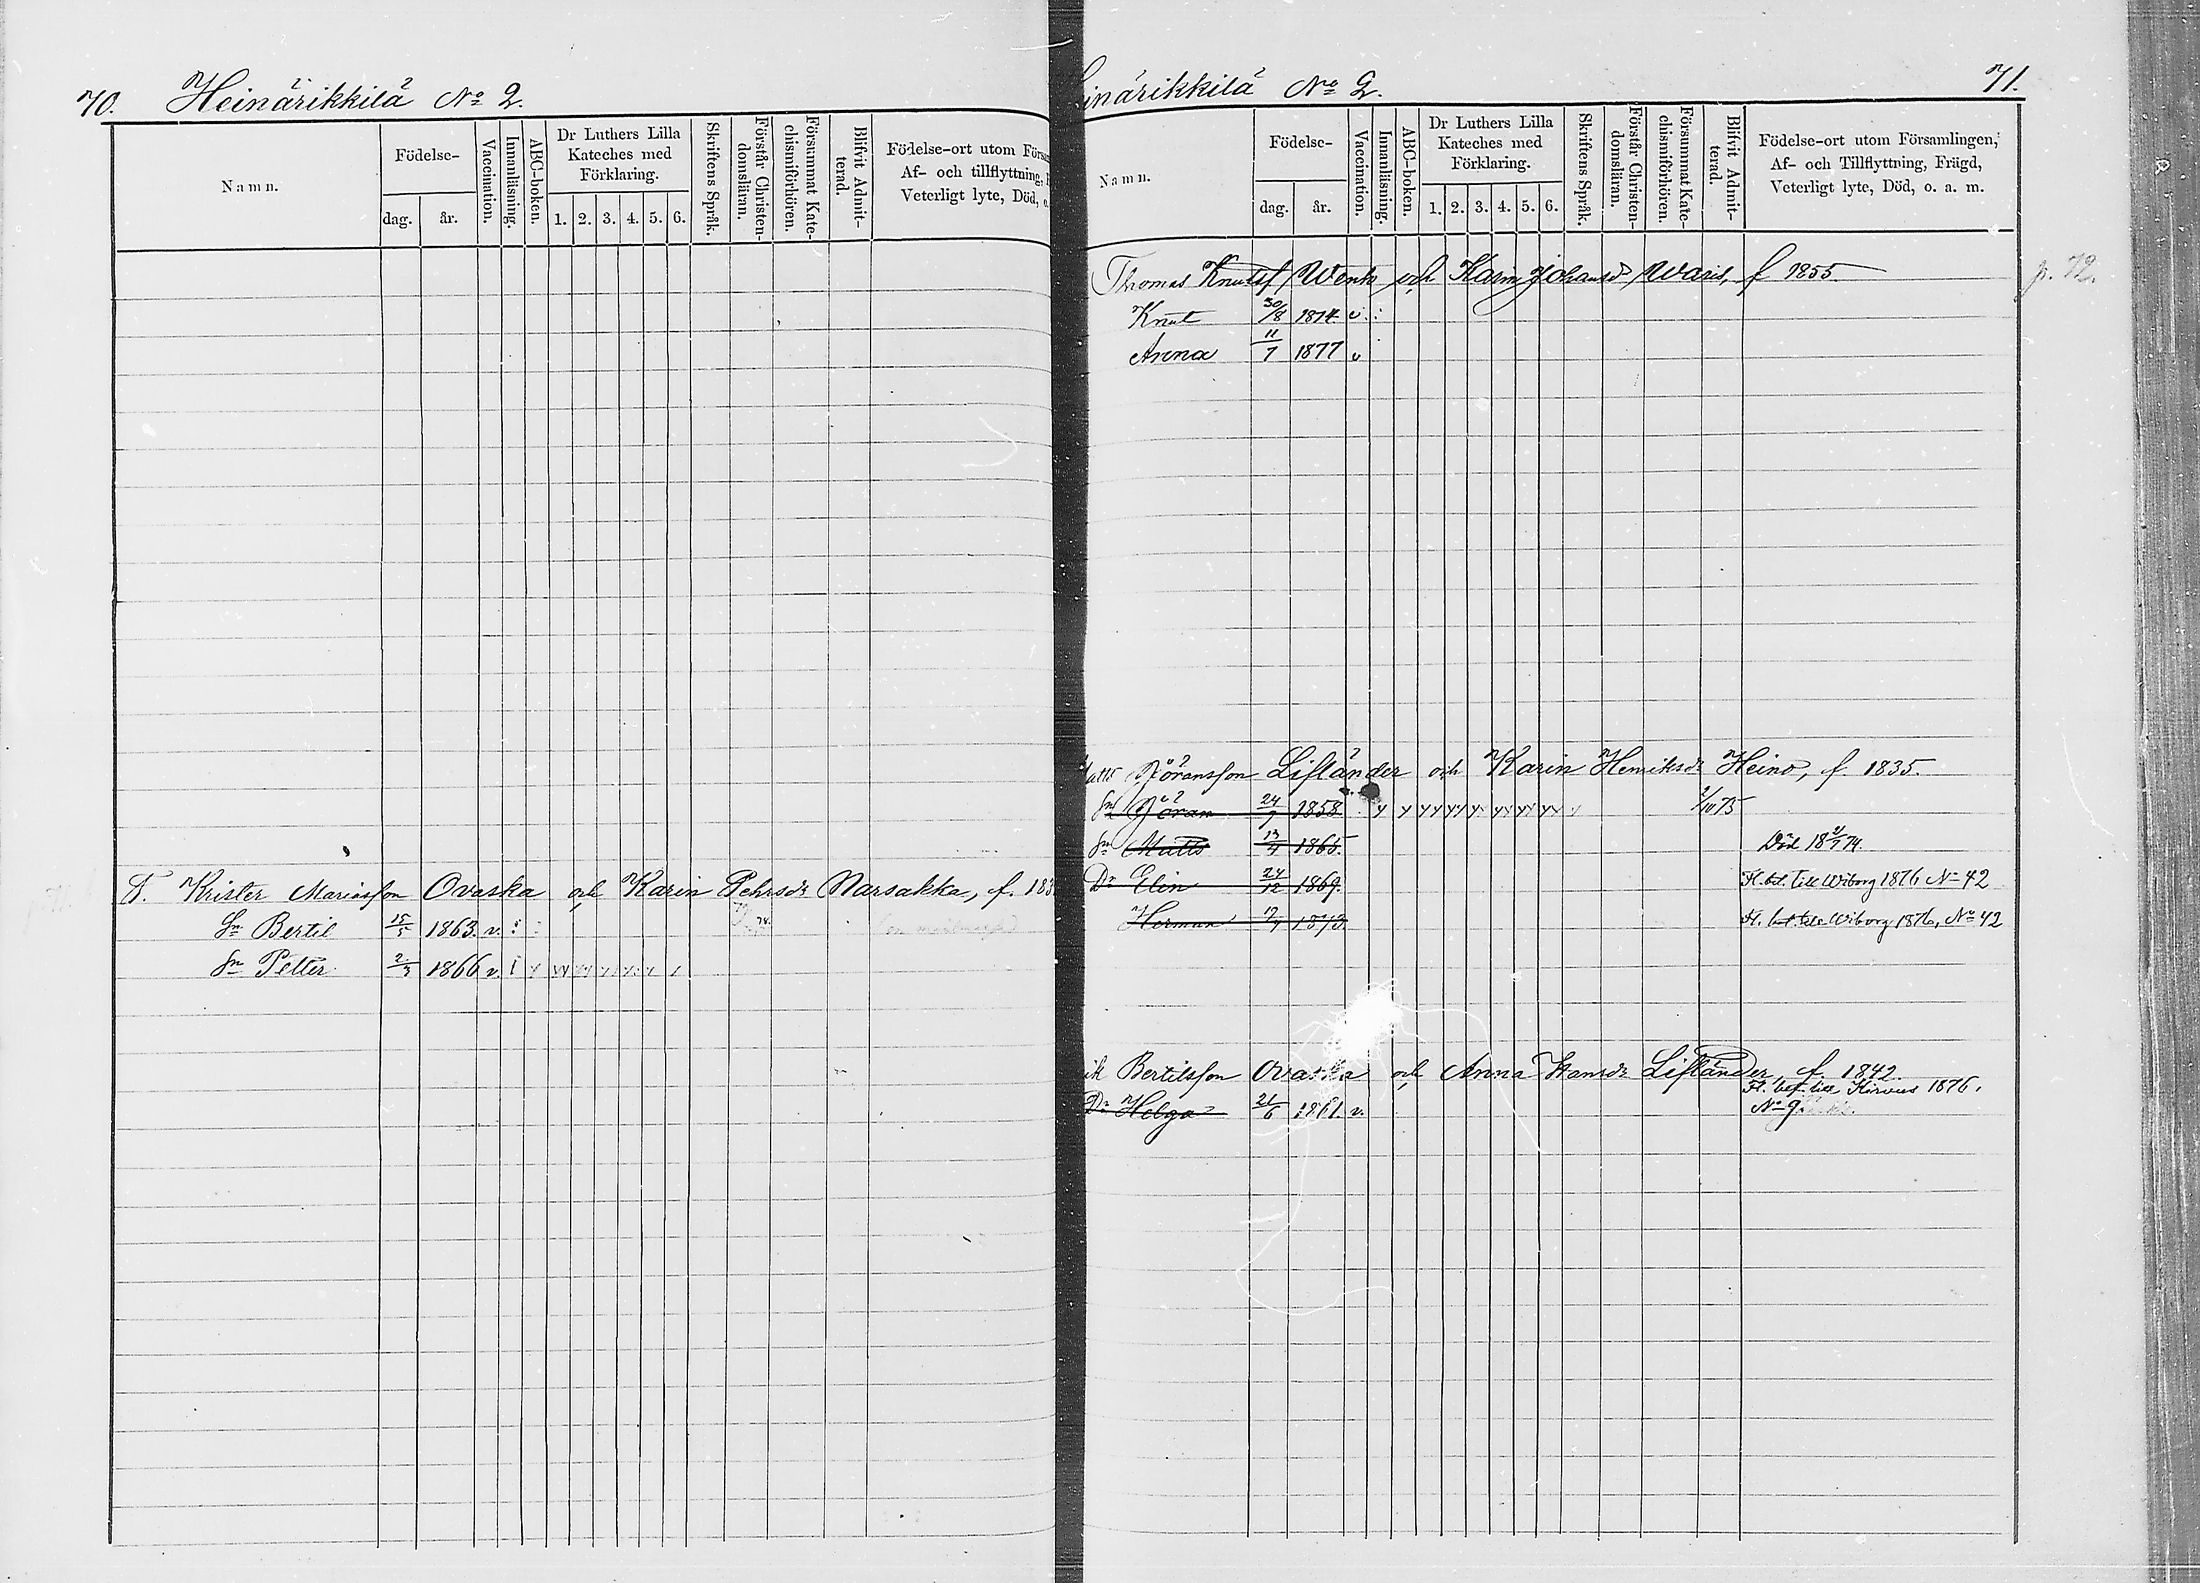 70. Heinärikkilä No 2.
Namn.
Födelse-
dag.
år.
Vaccination.
Innanläsning.
ABC-boken.
Dr Luthers Lilla
Kateches med
Förklaring.
1. 2. 3. 4. 5. 6.
Skriftens Språk.
Förstår Christen-
domsläran.
Försummat Kate-
chismiförhören.
Blifvit Admit-
terad.
Födelse-ort utom Förs
Af- och tillflyttning,
Veterligt lyte, Död, o.
T. Krister Mariasson Ovaska och Karin Pehrsdr Narsakka, f. 183
Sn Bertil 15/5 1863. v.
Sn Petter 2/3 1866 v.
inärikkilä No 2. 71.
Namn.
Födelse-
dag.
år.
Vaccination.
Innanläsning.
ABC-boken.
Dr Luthers Lilla
Kateches med
Förklaring.
1. 2. 3. 4. 5. 6.
Skriftens Språk.
Förstår Christen-
domsläran.
Försummat Kate-
chismiförhören.
Blifvit Admit-
terad.
Födelse-ort utom Församlingen,
Af- och Tillflyttning, Frägd,
Veterligt lyte, Död, o. a. m.
Thomas Knutsf Wenh och Karin Johansd Waris, f 1855. p. 72.
Knut 30/8 1874 v.
Anna 11/7 1877 v
atts Jöransson Lifländer och Karin Henriksdr Heino, f. 1835.
Sn Jöran 24/9 1858
Sn Matts 1865. Död
Dr Elin 24/12 1869. fl. bet. till Wiborg 1876 No 42
Herman 1873. fl. bet. till Wiborg 1876, No 42
ik Bertilsson Ovaska och Anna Hansdr Lifländer, f. 1842.
Dr Helga 21/6 1861 v. fl. bet. till Kirvus 1876.
No 9